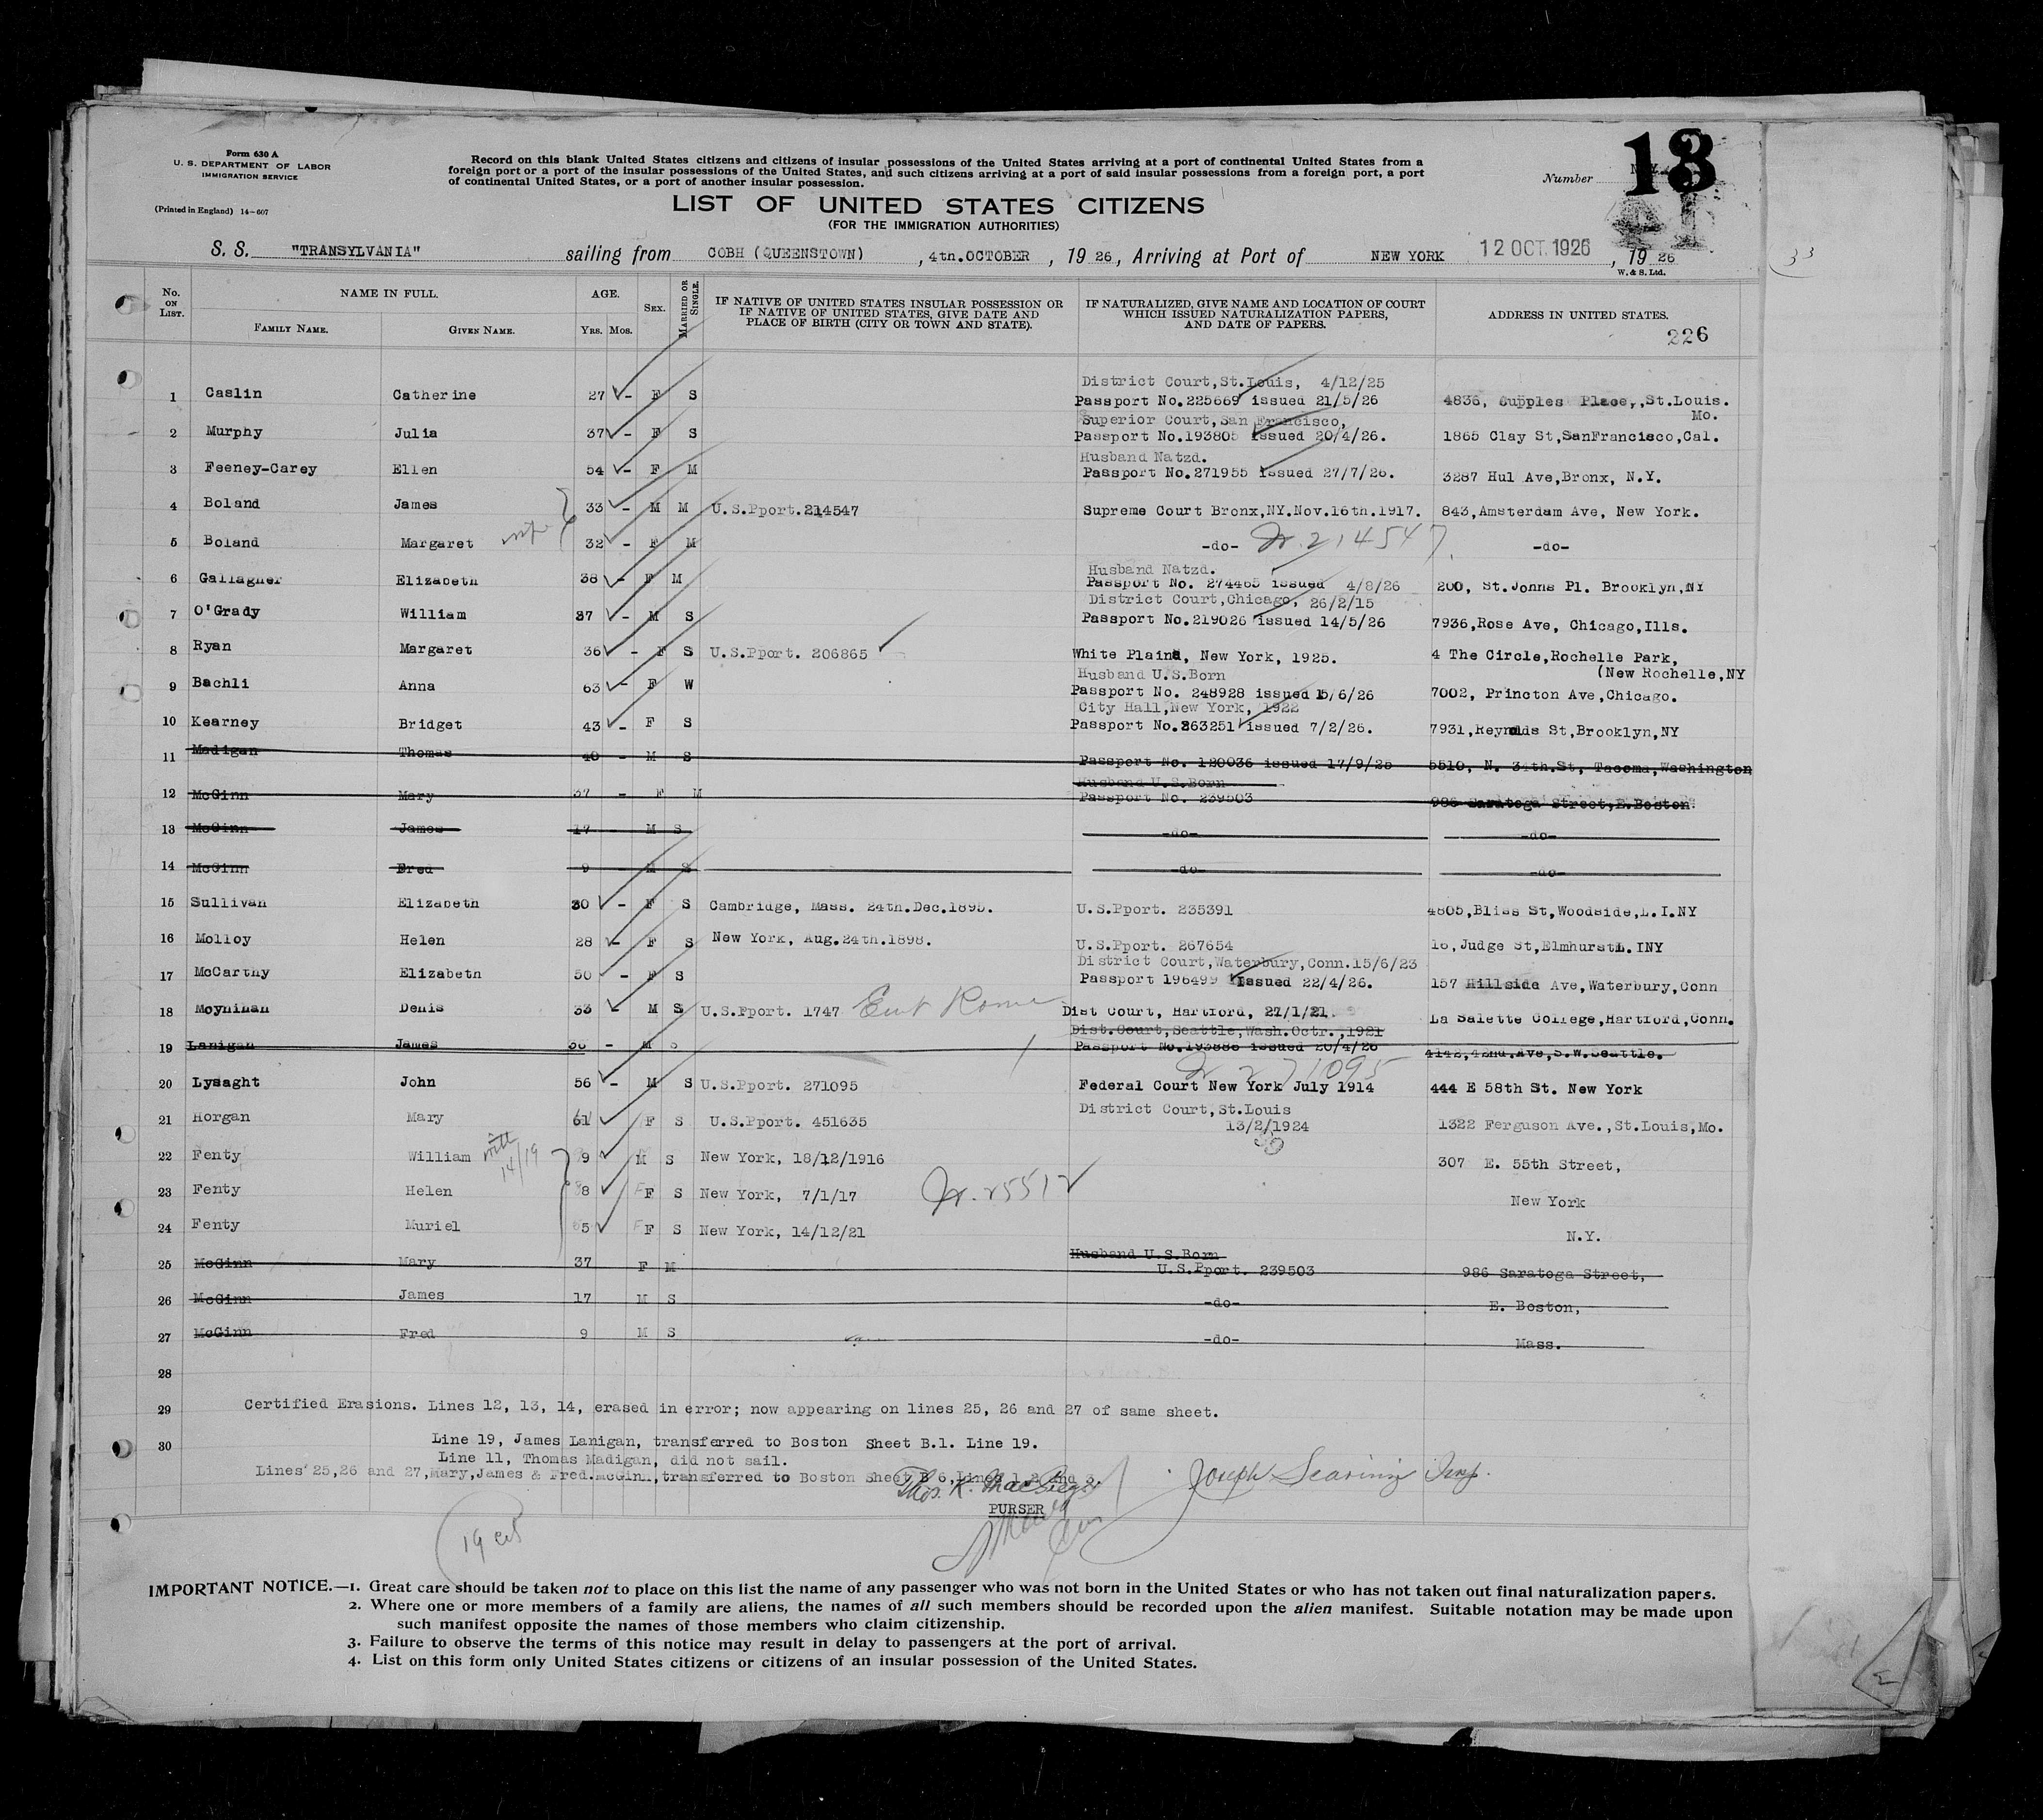 Form 630 A
U. S. DEPARTMENT OF LABOR
IMMIGRATION SERVICE
(Printed in England) 14-607
Record on this blank United States citizens and citizens of insular possessions of the United States arriving at a port of continental United States from a
foreign port or a port of the insular possessions of the United States, and such citizens arriving at a port of said insular possessions from a foreign port, a port
of continental United States, or a port of another insular possession.
Number 13
LIST OF UNITED STATES CITIZENS
(FOR THE IMMIGRATION AUTHORITIES)
S. S. "TRANSYLVANIA" sailing from COBH (QUEENSTOWN), 4th.OCTOBER, 1926, Arriving at Port of NEW YORK 12 OCT 1926, 1926
W. & S. Ltd.
33
No. ON LIST. NAME IN FULL. AGE. SEX. MARRIED OR SINGLE. IF NATIVE OF UNITED STATES INSULAR POSSESSION OR IF NATIVE OF UNITED STATES, GIVE DATE AND PLACE OF BIRTH (CITY OR TOWN AND STATE). IF NATURALIZED, GIVE NAME AND LOCATION OF COURT WHICH ISSUED NATURALIZATION PAPERS, AND DATE OF PAPERS. ADDRESS IN UNITED STATES.
FAMILY NAME. GIVEN NAME. YRS. MOS.
226
District Court,St.Louis, 4/12/25
1 Caslin Catherine 27 - F S Passport No.225669 issued 21/5/26 4836, Cupples Place,,St.Louis. Mo.
Superior Court,San Francisco,
2 Murphy Julia 37 - F S Passport No.193805 issued 20/4/26. 1865 Clay St,SanFrancisco,Cal.
Husband Natzd.
3 Feeney-Carey Ellen 54 - F M Passport No.271955 issued 27/7/26. 3287 Hul Ave,Bronx, N.Y.
4 Boland James 33 - M M U.S.Pport.214547 Supreme Court Bronx,NY.Nov.16th.1917. 843,Amsterdam Ave, New York.
5 Boland Margaret wife 32 - F M -do- 214547 -do-
Husband Natzd.
6 Gallagher Elizabeth 38 - F M Passport No. 274465 issued 4/8/26 200, St.Johns Pl. Brooklyn,NY
District Court,Chicago, 26/2/15
7 O'Grady William 37 - M S Passport No.219026 issued 14/5/26 7936,Rose Ave, Chicago,Ills.
8 Ryan Margaret 36 - F S U.S.Pport. 206865 White Plains, New York, 1925. 4 The Circle,Rochelle Park,
(New Rochelle,NY
Husband U.S.Born
9 Bachli Anna 63 - F W Passport No. 248928 issued 15/6/26 7002, Princton Ave,Chicago.
City Hall,New York, 1922
10 Kearney Bridget 43 - F S Passport No.263251 issued 7/2/26. 7931,Reynolds St,Brooklyn,NY
11 Madigan Thomas 40 - M S Passport No. 120036 issued 17/9/25 5510, N. 34th.St, Tacoma,Washington
Husband U.S.Born
12 McGinn Mary 37 - F M Passport No. 239503 986 Saratoga Street,E.Boston.
13 McGinn James 17 M S -do- -do-
14 McGinn Fred 9 M S -do- -do-
15 Sullivan Elizabeth 30 - F S Cambridge, Mass. 24th.Dec.1895. U.S.Pport. 235391 4805,Bliss St,Woodside,L.I.NY
16 Molloy Helen 28 - F S New York, Aug.24th.1898. U.S.Pport. 267654 16,Judge St,ElmhurstL.INY
District Court,Waterbury,Conn.15/6/23
17 McCarthy Elizabeth 50 - F S Passport 196499 Issued 22/4/26. 157 Hillside Ave,Waterbury,Conn
18 Moynihan Denis 33 - M S U.S.Pport. 1747 Dist Court, Hartford, 21/1/21. La Salette College,Hartford,Conn.
Dist.Court,Seattle,Wash.Octr.,1921
19 Lanigan James 36 - M S Passport No.193886 issued 20/4/26 4142,42nd.Ave,S.W.Seattle.
271095
20 Lysaght John 56 - M S U.S.Pport. 271095 Federal Court New York July 1914 444 E 58th St. New York
21 Horgan Mary 61 F S U.S.Pport. 451635 District Court,St.Louis 1322 Ferguson Ave.,St.Louis,Mo.
13/2/1924
22 Fenty William with 14/19 9 M S New York, 18/12/1916 307 E. 55th Street,
23 Fenty Helen 8 F S New York, 7/1/17 New York
24 Fenty Muriel 5 F S New York, 14/12/21 N.Y.
Husband U.S.Born
25 McGinn Mary 37 F M U.S.Pport. 239503 986 Saratoga Street,
26 McGinn James 17 M S -do- E. Boston,
27 McGinn Fred 9 M S -do- Mass.
28
29 Certified Erasions. Lines 12, 13, 14, erased in error; now appearing on lines 25, 26 and 27 of same sheet.
30 Line 19, James Lanigan, transferred to Boston Sheet B.1. Line 19.
Line 11, Thomas Madigan, did not sail.
Lines 25,26 and 27,Mary,James & Fred.McGinn,transferred to Boston Sheet B 6,Lines 1,2 and 3.
Joseph
PURSER
IMPORTANT NOTICE.—1. Great care should be taken not to place on this list the name of any passenger who was not born in the United States or who has not taken out final naturalization papers.
2. Where one or more members of a family are aliens, the names of all such members should be recorded upon the alien manifest. Suitable notation may be made upon
such manifest opposite the names of those members who claim citizenship.
3. Failure to observe the terms of this notice may result in delay to passengers at the port of arrival.
4. List on this form only United States citizens or citizens of an insular possession of the United States.